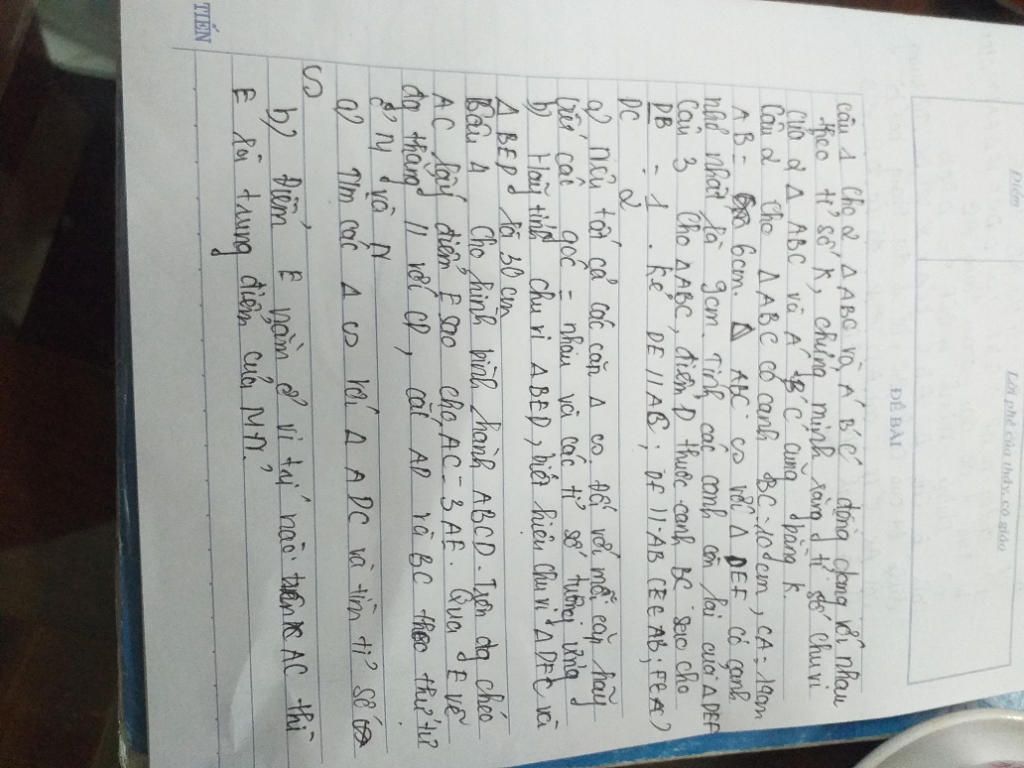 Điểm
Lời phê của thầy, cô giáo
ĐỀ BÀI
câu 1 cho 2 Δ ABC và A' B' C' đồng dạng với nhau
theo tỉ số K, chứng minh rằng tỉ số chu vi
của 2 Δ ABC và A' B' C' cũng bằng k
Câu 2 cho Δ ABC có cạnh BC = 10 cm, CA = 14cm
AB = 6cm. Δ ABC ∽ với Δ DEF có cạnh
nhỏ nhất là 9cm. Tính các cạnh còn lại của Δ DEF
Câu 3 cho Δ ABC, điểm D thuộc cạnh BC sao cho
DB = 1 . kẻ DE // AB; DF // AB (E ∈ AB; F ∈ A )
DC 2
a) nêu tất cả các cặp Δ ∽. Đối với mỗi cặp hãy
viết các góc = nhau và các tỉ số tương ứng
b) Hãy tính chu vi Δ BED, biết hiệu chu vi Δ DFC và
Δ BED là 30 cm
Bài 4 cho hình bình hành ABCD. Trên đg chéo
AC lấy điểm E sao cho AC = 3 AE. Qua E vẽ
đg thẳng // với CD, cắt AD và BC theo thứ tự
ở M và N
a) Tìm các Δ ∽ với Δ ADC và tìm tỉ số
b) Điểm E nằm ở vị trí nào trên AC thì
E là trung điểm của MN.
TIẾN